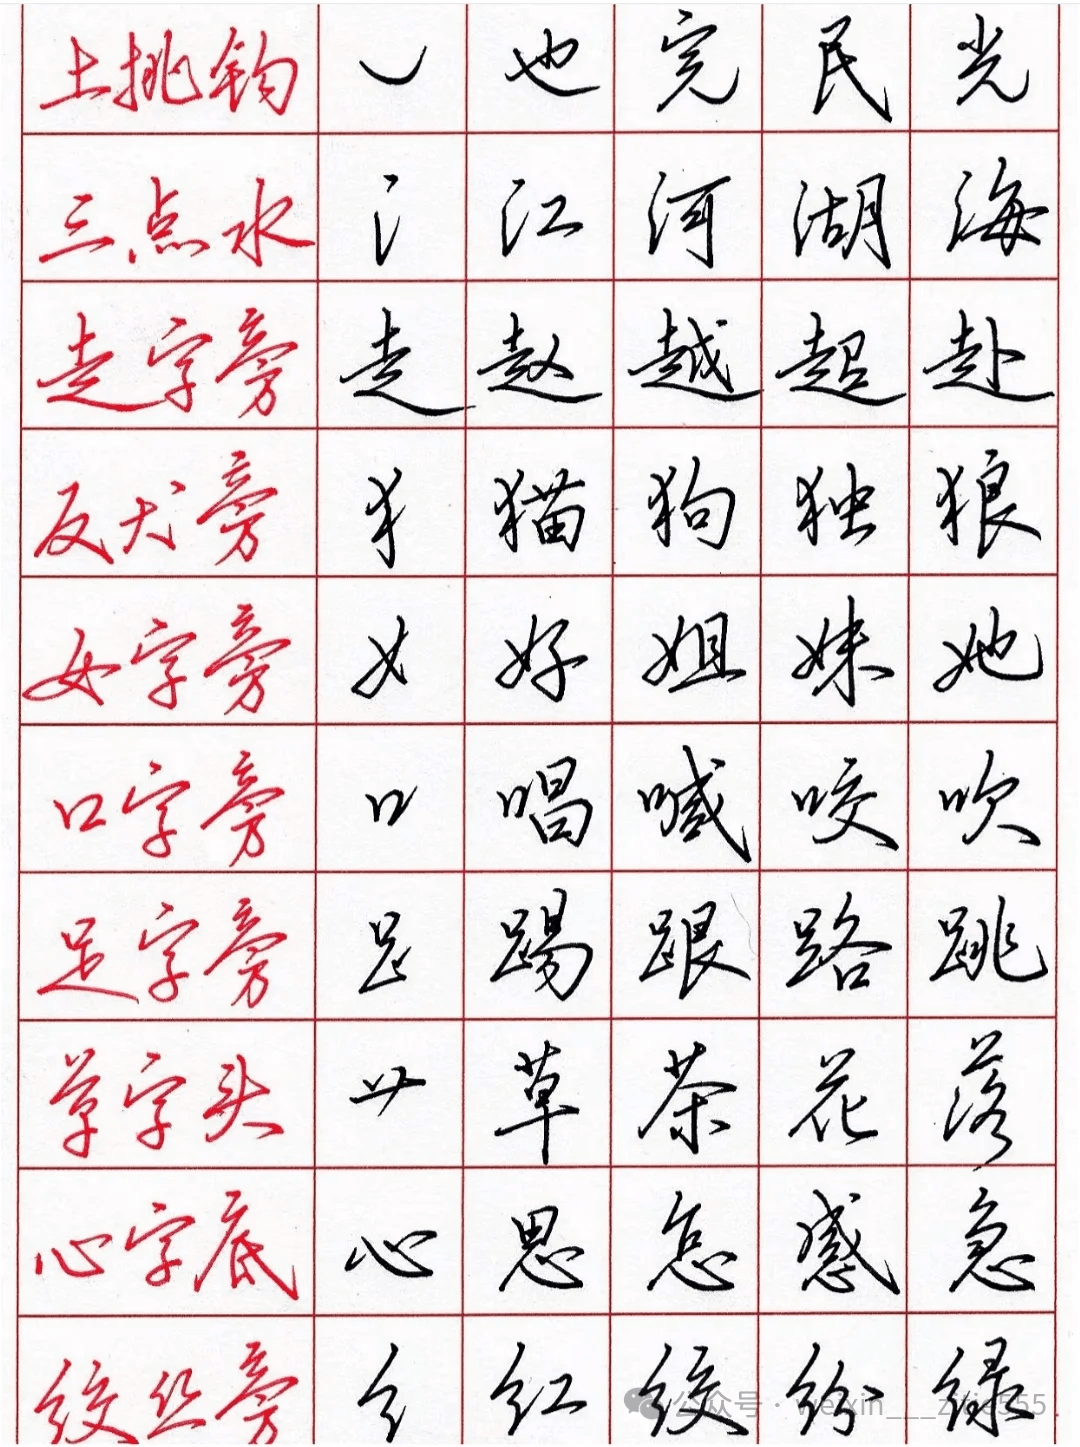 土挑钩 ㇃ 也 完 民 光
三点水 氵 江 河 湖 海
走字旁 走 赵 越 超 赴
反犬旁 犭 猫 狗 独 狼
女字旁 女 好 姐 妹 她
口字旁 口 唱 喊 咬 吹
足字旁 𧾷 踢 跟 路 跳
草字头 艹 草 茶 花 落
心字底 心 思 怎 感 急
绞丝旁 纟 红 绞 纷 绿
公众号 · weixin___zitie555